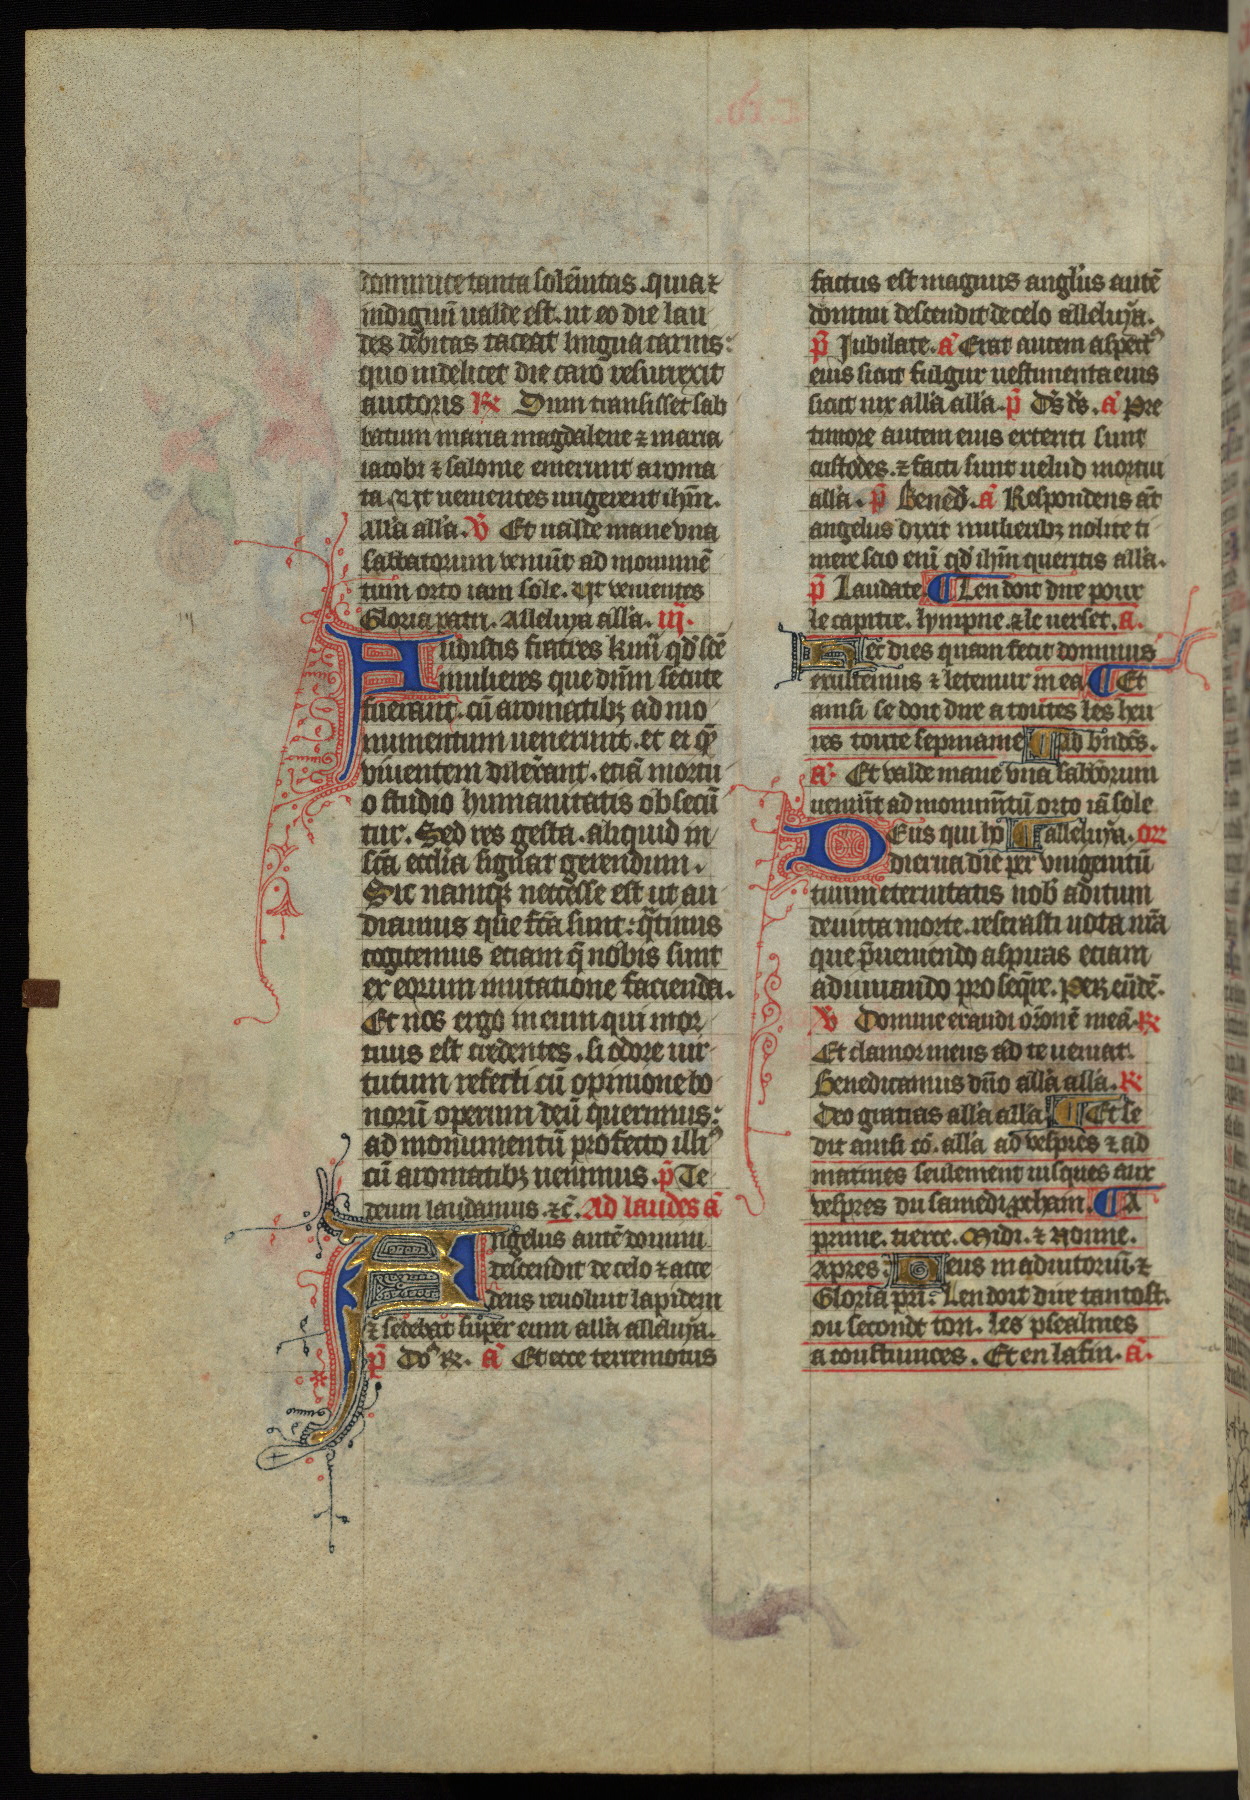 dominice tanta solēnitas. quia ⁊
indignū ualde est. ut eo die lau
des debitas taceat lingua carnis:
quo uidelicet die caro resurrexit
auctoris ℟ Dum transisset sab
batum maria magdalene ⁊ maria
iacobi ⁊ salome emerunt aroma
ta Ut uenientes ungerent ihm̄.
Alla alla. ℣ Et ualde mane vna
sabbatorum veniūt ad monumē
tum orto iam sole. Ut venientes
Gloria patri. Alleluya alla. iij.
Audistis fratres kmī qd scē
mulieres que dnm̄ secute
fuerant. cū aromatibꝫ ad mo
numentum uenerunt. et ei q̄
viuentem dilexerant. etiā mortu
o studio humanitatis obsecū
tur. Sed res gesta. aliquid in
scā ecclia signat gerendum.
Sic namqꝫ necesse est ut au
diamus que fcā sunt: q̄tinus
cogitemus etiam q̄ nobis sunt
ex eorum imitatione facienda.
Et nos ergo in eum qui mor
tuus est credentes. si odore uir
tutum referti cū opinione bo
norū operum deū querimus:
ad monumentū profecto illiꝰ
cū aromatibꝫ uenimus. p̄ Te
deum laudamus. ⁊c̄. Ad laudes a
Angelus autē domini
descendit de celo ⁊ acce
dens reuoluit lapidem
⁊ sedebat super eum alla alleluya.
p̄ Dns R. a Et ecce terremotus
factus est magnus anglus autē
domini descendit de celo alleluya.
p̄ Jubilate. a Erat autem aspectꝰ
eius sicut fulgur uestimenta eius
sicut nix alla alla. p̄ Ds ds. a Pre
timore autem eius exterriti sunt
custodes. ⁊ facti sunt uelud mortui
alla. p̄ Bened. a Respondens aut
angelus dixit mulieribꝫ nolite ti
mere scio enī qd ihm̄ queritis alla.
p̄ Laudate. ¶ Len doit dire pour
le capitre. lympne. ⁊ le uerset. a.
Hec dies quam fecit dominus
exultemus ⁊ letemur in ea ¶ Et
ainsi se doit dire a toutes les heu
res toute sepmaine ¶ ad bndcs.
a. Et valde mane vna sabborum
ueniūt ad monumtū orto iā sole
Deus qui ho ¶ alleluya. orr
dierna die per vnigenitū
tuum eternitatis nob aditum
deuicta morte. reserasti uota nr̄a
que p̄ueniendo aspiras etiam
adiuuando proseqre. Per eūdē.
℣ Domine exaudi orōnē meā. ℟
Et clamor meus ad te ueniat.
Benedicamus dn̄o alla alla. ℟
Deo gratias alla alla ¶ Et se
dit ainsi cō. alla ad vespres ⁊ ad
matines seulement iusques aux
vespres du samedi pcham. ¶ A
prime. tierce. Midi. ⁊ Nonne.
apres. Deus in adiutoriū. ⁊
Gloria pri. Len doit dire tantost.
ou secondt ton. les psealmes
a coustumees. Et en la fin. a.